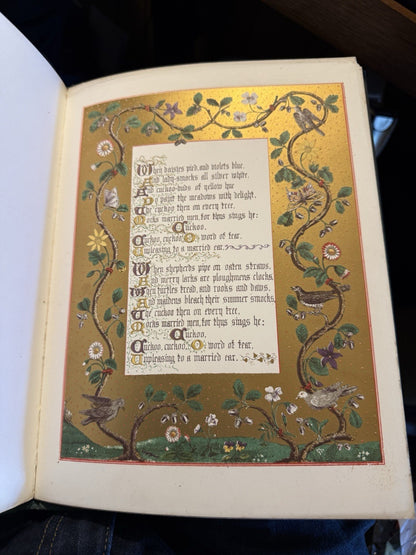 When daisies pied, and violets blue,
And lady-smocks all silver white,
And cuckoo-buds of yellow hue
Do paint the meadows with delight,
The cuckoo then on every tree,
Mocks married men, for thus sings he:
Cuckoo,
Cuckoo, cuckoo, O word of fear,
Unpleasing to a married ear.
When shepherds pipe on oaten straws,
And merry larks are ploughmens clocks,
When turtles tread, and rooks, and daws,
And maidens bleach their summer smocks,
The cuckoo then on every tree,
Mocks married men, for thus sings he:
Cuckoo,
Cuckoo, cuckoo, O word of fear,
Unpleasing to a married ear.